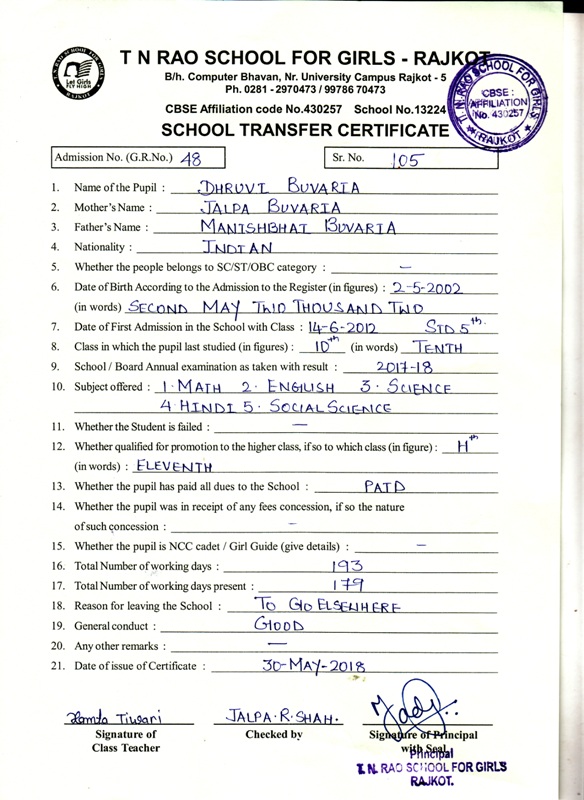 T N RAO SCHOOL FOR GIRLS - RAJKOT
B/h. Computer Bhavan, Nr. University Campus Rajkot - 5
Ph. 0281 - 2970473 / 99786 70473
CBSE Affiliation code No.430257 School No.13224
SCHOOL TRANSFER CERTIFICATE
T. N. RAO SCHOOL FOR GIRLS
RAJKOT
Let Girls
FLY HIGH
T. N. RAO SCHOOL FOR GIRLS
CBSE :
AFFILIATION
No. 430257
★ RAJKOT ★
Admission No. (G.R.No.) 48 Sr. No. 105
1. Name of the Pupil : DHRUVI BUVARIA
2. Mother's Name : JALPA BUVARIA
3. Father's Name : MANISHBHAI BUVARIA
4. Nationality : INDIAN
5. Whether the people belongs to SC/ST/OBC category : —
6. Date of Birth According to the Admission to the Register (in figures) : 2-5-2002
(in words) SECOND MAY TWO THOUSAND TWO
7. Date of First Admission in the School with Class : 14-6-2012 STD 5th.
8. Class in which the pupil last studied (in figures) : 10th (in words) TENTH
9. School / Board Annual examination as taken with result : 2017-18
10. Subject offered : 1. MATH 2. ENGLISH 3. SCIENCE
4 HINDI 5. SOCIAL SCIENCE
11. Whether the Student is failed : —
12. Whether qualified for promotion to the higher class, if so to which class (in figure) : 11th
(in words) : ELEVENTH
13. Whether the pupil has paid all dues to the School : PAID
14. Whether the pupil was in receipt of any fees concession, if so the nature
of such concession : —
15. Whether the pupil is NCC cadet / Girl Guide (give details) : —
16. Total Number of working days : 193
17. Total Number of working days present : 179
18. Reason for leaving the School : TO GO ELSEWHERE
19. General conduct : GOOD
20. Any other remarks : —
21. Date of issue of Certificate : 30-MAY-2018
Tiwari JALPA.R.SHAH.
Signature of Checked by Signature of Principal
Class Teacher with Seal
Principal
T. N. RAO SCHOOL FOR GIRLS
RAJKOT.